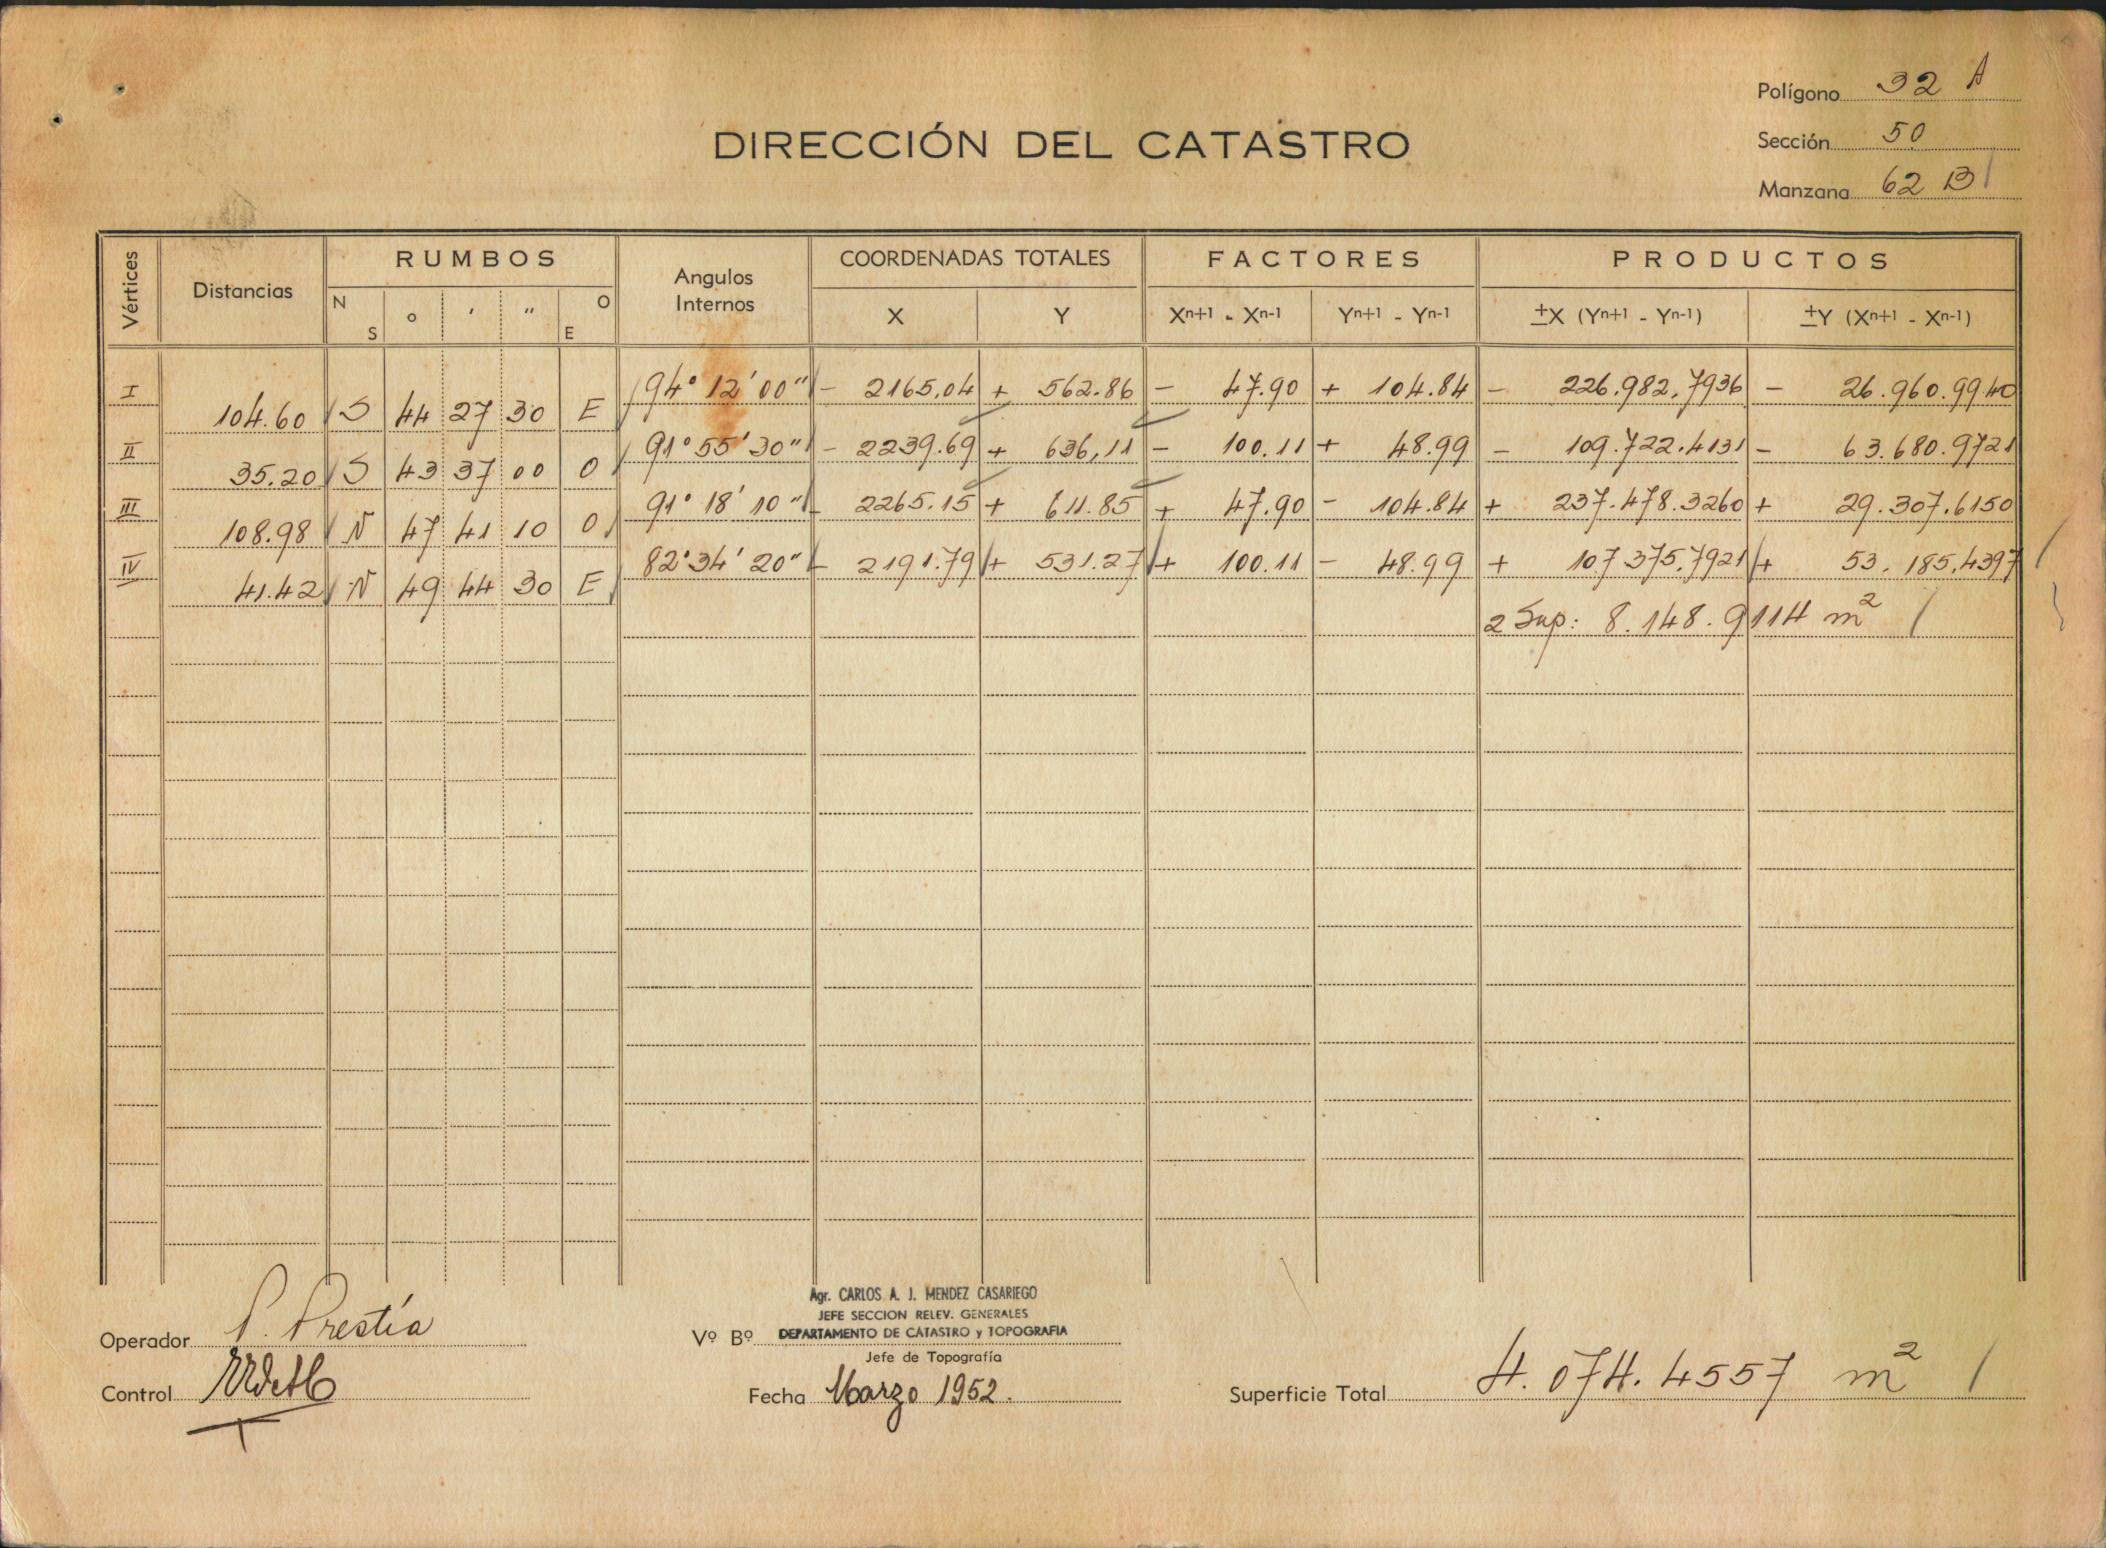 Polígono 32 A
Sección 50
Manzana 62 B
DIRECCIÓN DEL CATASTRO
Vértices Distancias RUMBOS Angulos Internos COORDENADAS TOTALES FACTORES PRODUCTOS
N S o ' " O E X Y Xn+1 - Xn-1 Yn+1 - Yn-1 ±X (Yn+1 - Yn-1) ±Y (Xn+1 - Xn-1)
I 94° 12' 00" - 2165.04 + 562.86 - 47.90 + 104.84 - 226.982.7936 - 26.960.9940
104.60 S 44 27 30 E
II 91° 55' 30" - 2239.69 + 636,11 - 100.11 + 48.99 - 109.722.4131 - 63.680.9721
35.20 S 43 37 00 O
III 91° 18' 10" - 2265.15 + 611.85 + 47.90 - 104.84 + 237.478.3260 + 29.307.6150
108.98 N 47 41 10 O
IV 82° 34' 20" - 2191.79 + 531.27 + 100.11 - 48.99 + 107.375.7921 + 53.185.4397
41.42 N 49 44 30 E
2 Sup: 8.148.9114 m²
Agr. CARLOS A. J. MENDEZ CASARIEGO
JEFE SECCION RELEV. GENERALES
Operador P. Prestía Vº Bº DEPARTAMENTO DE CATASTRO y TOPOGRAFIA
Jefe de Topografía
Control
Fecha Marzo 1952.
Superficie Total 4.074.4557 m²